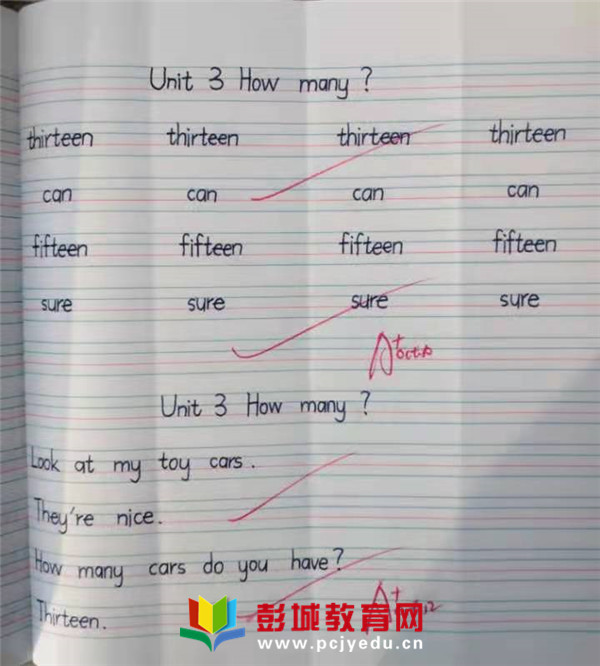 Unit 3 How many ?
thirteen thirteen thirteen thirteen
can can can can
fifteen fifteen fifteen fifteen
sure sure sure sure
A+
Unit 3 How many ?
Look at my toy cars.
They're nice.
How many cars do you have?
A+
Thirteen.
彭城教育网
www.pcjyedu.cn